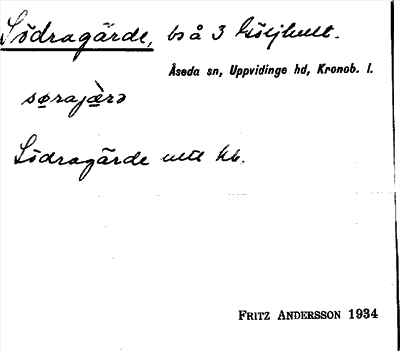 Södragärde, bs å 3
Åseda sn, Uppvidinge hd, Kronob. l.
sørajæ̀rə
Södragärde utt kb.
FRITZ ANDERSSON 1934